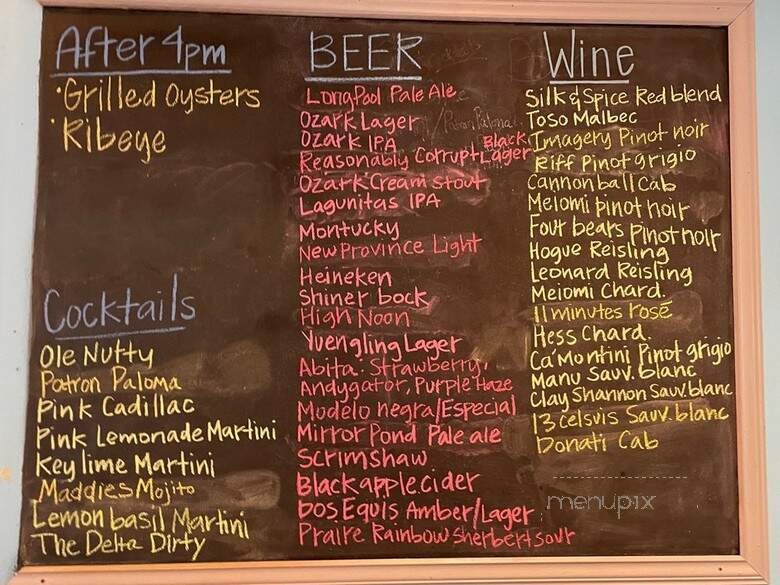 After 4pm
·Grilled Oysters
·Ribeye
Cocktails
Ole Nutty
Patron Paloma
Pink Cadillac
Pink Lemonade Martini
Key lime Martini
Maddies Mojito
Lemon basil Martini
The Delta Dirty
BEER
Longpool Pale Ale
Ozark Lager
/Patron Paloma
Ozark IPA
Reasonably Corrupt Black Lager
Ozark Cream stout
Lagunitas IPA
Montucky
New Province Light
Heineken
Shiner bock
High Noon
Yuengling Lager
Abita: Strawberry,
Andygator, Purple Haze
Modelo negra/Especial
Mirror Pond Pale ale
Scrimshaw
Black apple cider
Dos Equis Amber/Lager
Praire Rainbow Sherbert sour
Wine
Silk & Spice Red blend
Toso Malbec
Imagery Pinot noir
Riff Pinot grigio
Cannonball Cab
Meiomi pinot noir
Four bears Pinot noir
Hogue Reisling
Leonard Reisling
Meiomi Chard.
11 minutes rosé
Hess Chard.
Ca'Montini Pinot grigio
Manu Sauv. blanc
Clay Shannon Sauv. blanc
13 celsuis Sauv. blanc
Donati Cab
menupix